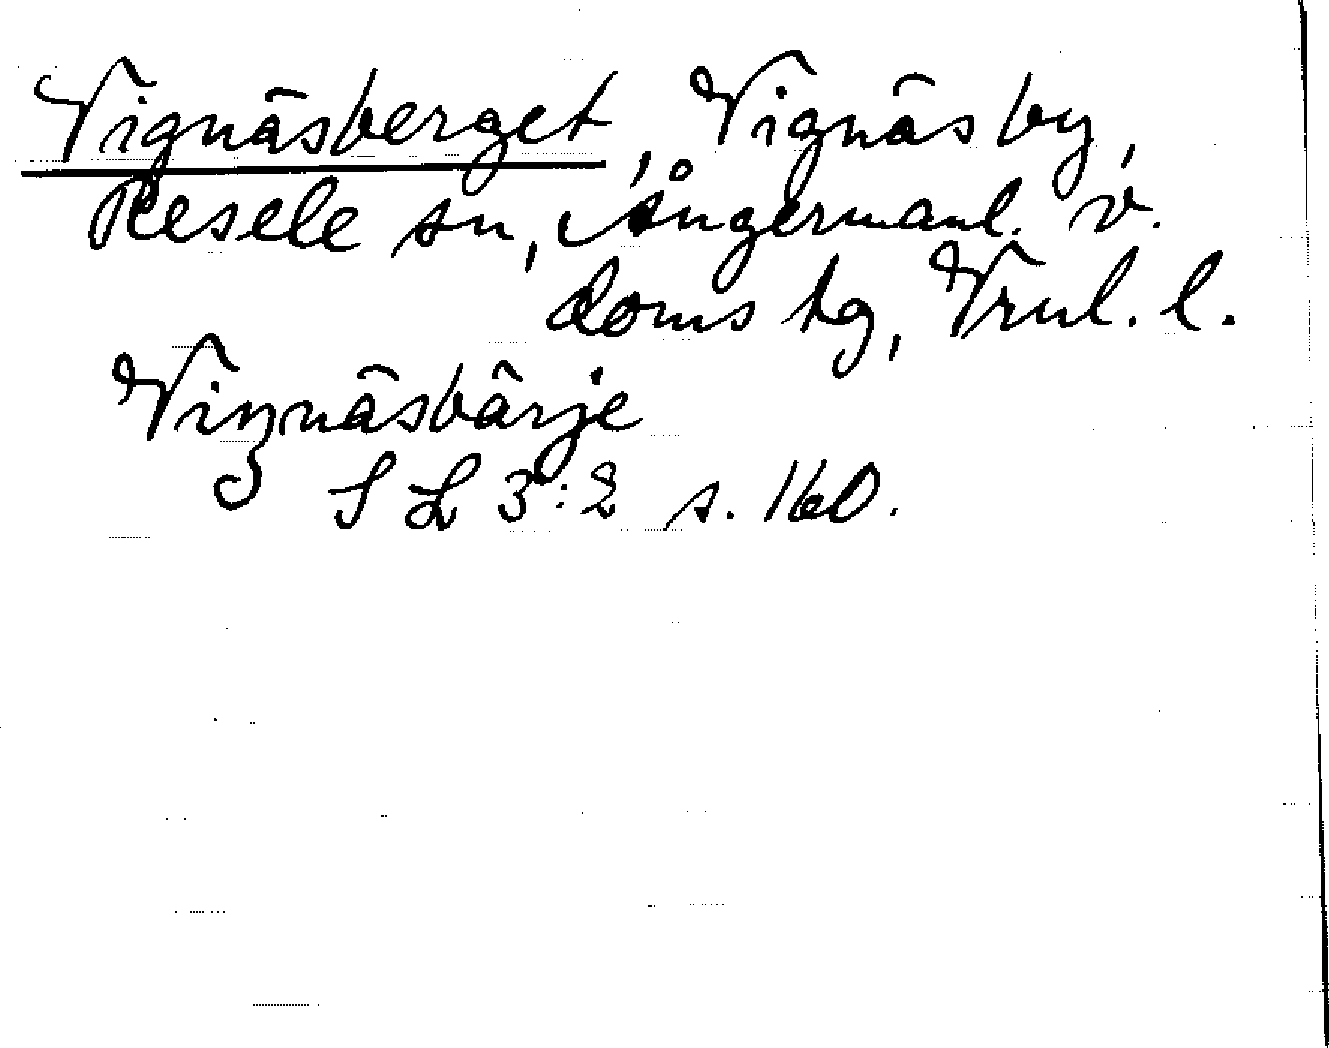 Vignäsberget, Vignäs by,
Resele sn, Ångermanl. v.
doms tg, Vrnl. l.
Viŋnäsbärje
S L 3:2 s. 160.